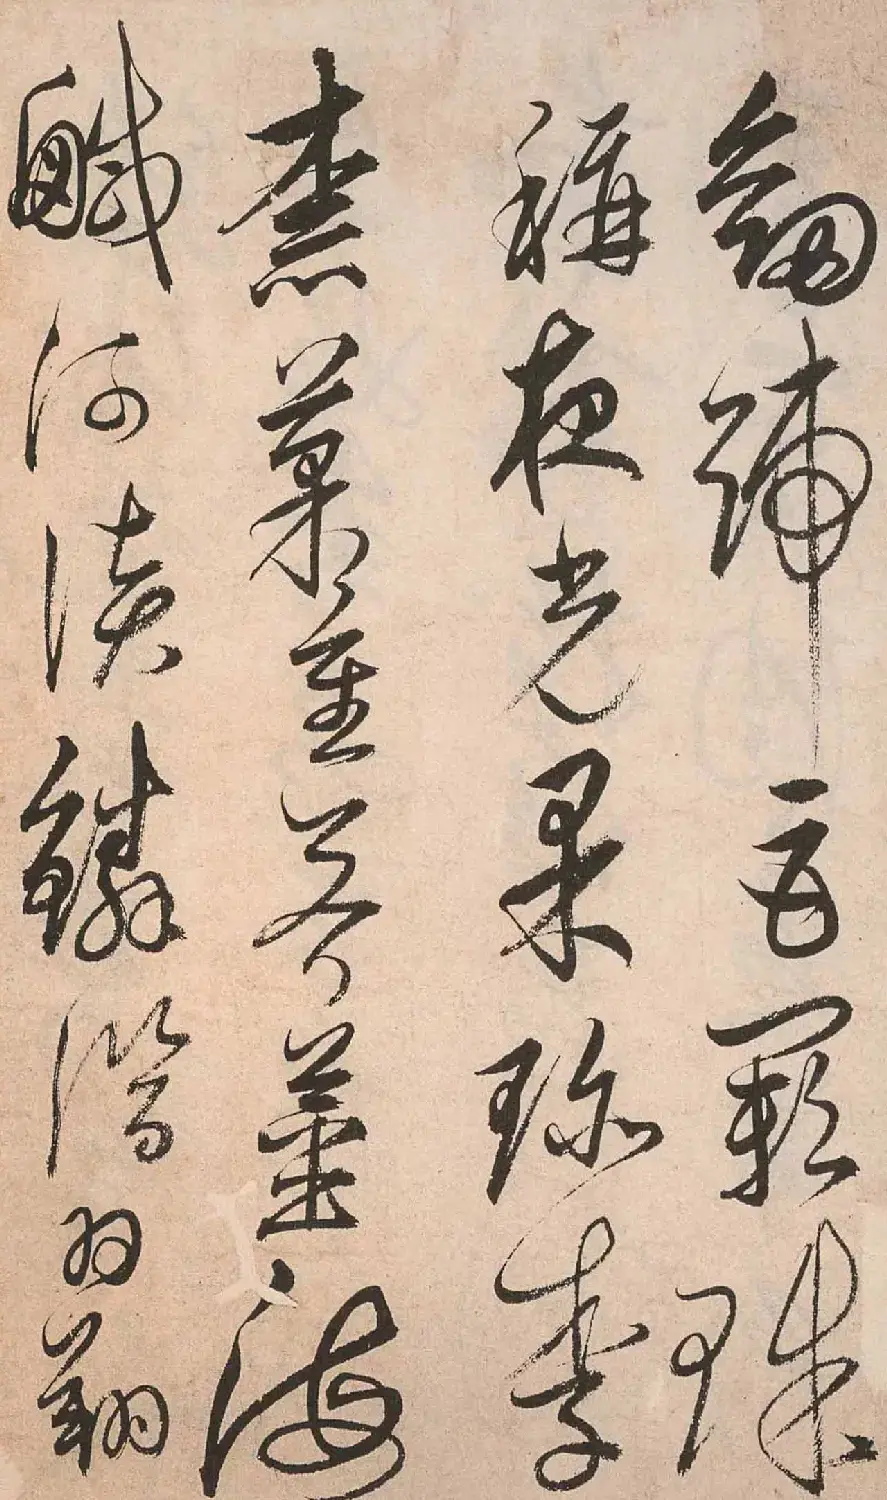 劒號巨闕珠
稱夜光果珍李
柰菜重芥薑海
鹹河淡鱗潛羽翔